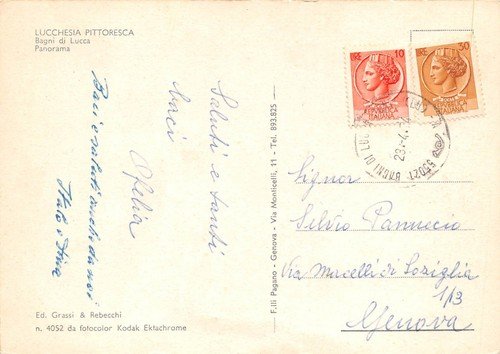 LUCCHESIA PITTORESCA
Bagni di Lucca
Panorama
Saluti e tanti
baci
Ofelia
Baci e saluti anche da noi
Italo e Tina
Ed. Grassi & Rebecchi
n. 4052 da fotocolor Kodak Ektachrome
F.lli Pagano - Genova - Via Monticelli, 11 - Tel. 893.825
LIRE 10
POSTE
ITALIANE
LIRE 30
POSTE
ITALIANE
55021 BAGNI DI LUCCA
Signor
Silvio Pannocio
Via Macelli di Soziglia
1/13
Genova